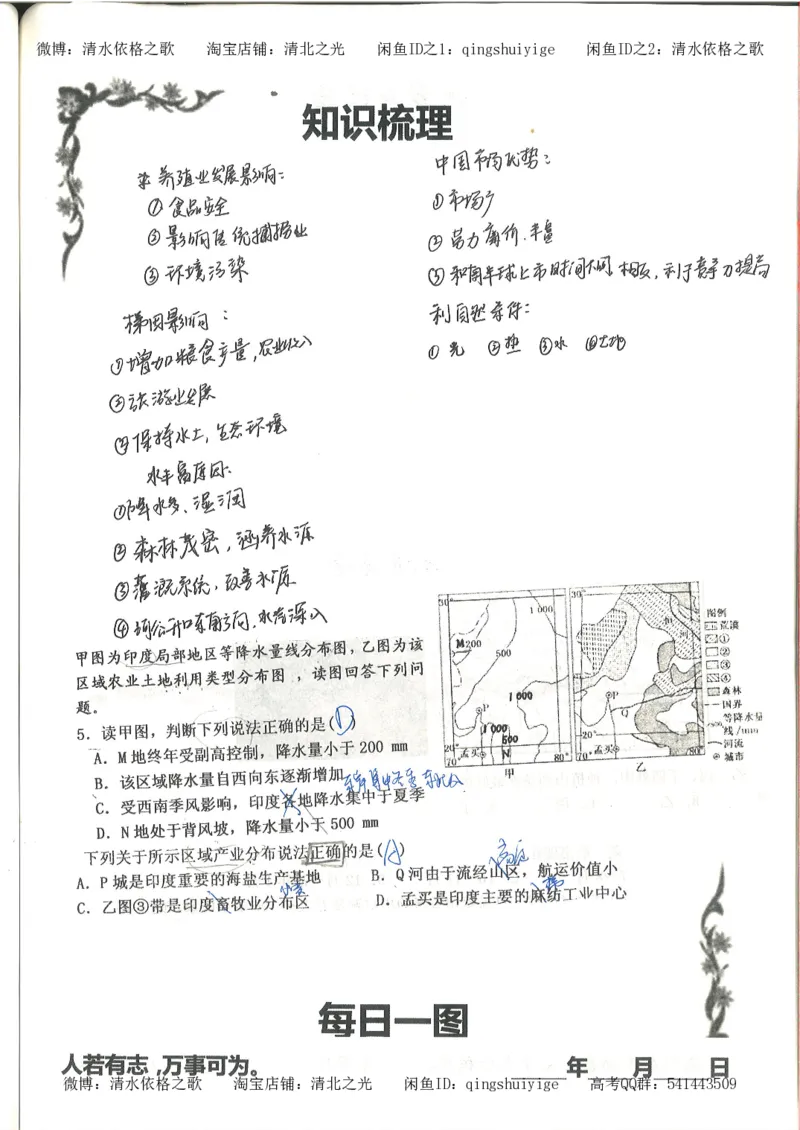 微博：清水依格之歌 淘宝店铺：清北之光 闲鱼ID之1：qingshuiyige 闲鱼ID之2：清水依格之歌
知识梳理
养殖业发展影响：
①食品安全
②影响传统捕捞业
③环境污染
梯田影响：
①增加粮食产量，农业收入
②旅游业发展
③保持水土，生态环境
水丰富原因：
①降水多、湿润
②森林茂密，涵养水源
③灌溉系统，改善水源
④河谷开口东南方向，水汽深入
中国市场优势：
①市场广
②
③和南半球上市时间不同，相反，利于竞争力提高
利自然条件：
①光 ②热 ③水 ④土地
甲图为印度局部地区等降水量线分布图，乙图为该
区域农业土地利用类型分布图 ，读图回答下列问
题。
5．读甲图，判断下列说法正确的是(D)
A．M地终年受副高控制，降水量小于 200 mm
B．该区域降水量自西向东逐渐增加
C．受西南季风影响，印度各地降水集中于夏季
D．N地处于背风坡，降水量小于 500 mm
下列关于所示区域产业分布说法正确的是(A)
A．P城是印度重要的海盐生产基地 B．Q河由于流经山区，航运价值小
高原
C．乙图③带是印度畜牧业分布区 D．孟买是印度主要的麻纺工业中心
棉
30° 1 000
M 200
500
1 000
P
1 000
500
20° 孟买 N
70° 80°
甲
30°
恒
河
P
Q
20°
孟买
70° 80°
乙
图例
荒漠
①
②
③
④
森林
国界
等降水量
线/mm
河流
城市
每日一图
人若有志，万事可为。 年 月 日
微博：清水依格之歌 淘宝店铺：清北之光 闲鱼ID：qingshuiyige 高考QQ群：541443509